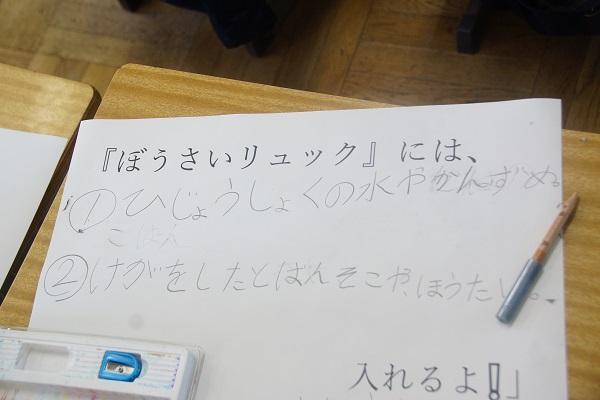 『ぼうさいリュック』には、
①ひじょうしょくの水やかんずめ。
ごはん
②けがをしたとばんそこや、ほうたい。
入れるよ!!」